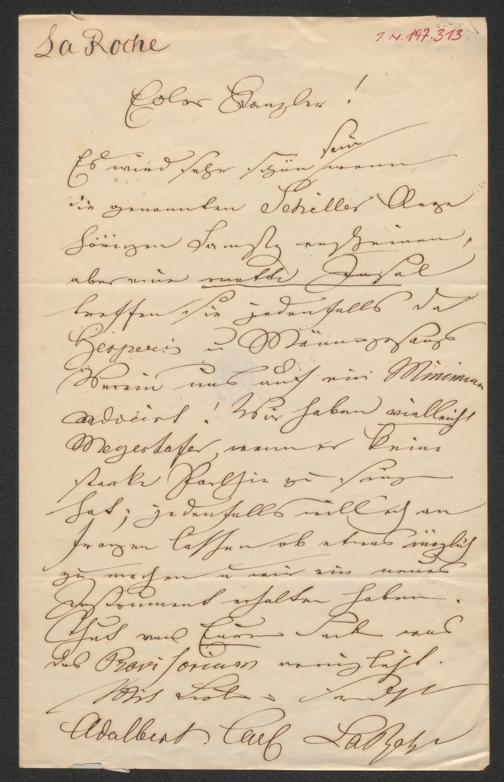 La Roche
I. N. 197.313
Edler Kanzler!
Es wird sehr schön sein wenn
die genannten Schiller Ange
hörigen Samstg erscheinen,
aber eine matte Insel
treffen sie jedenfalls da
Hesperis u Männergesang
Verein uns auf ein Minimum
reducirt! Wir haben vielleicht
Mayerhofer, wenn er keine
starke Parthie zu singen
hat; jedenfalls will ich an
fragen lassen ob etwas möglich
zu machen u wir ein neues
Instrument erhalten haben.
Thut von Eurer Seite was
das Provisorium
Mit
Adalbert Carl LaRoche